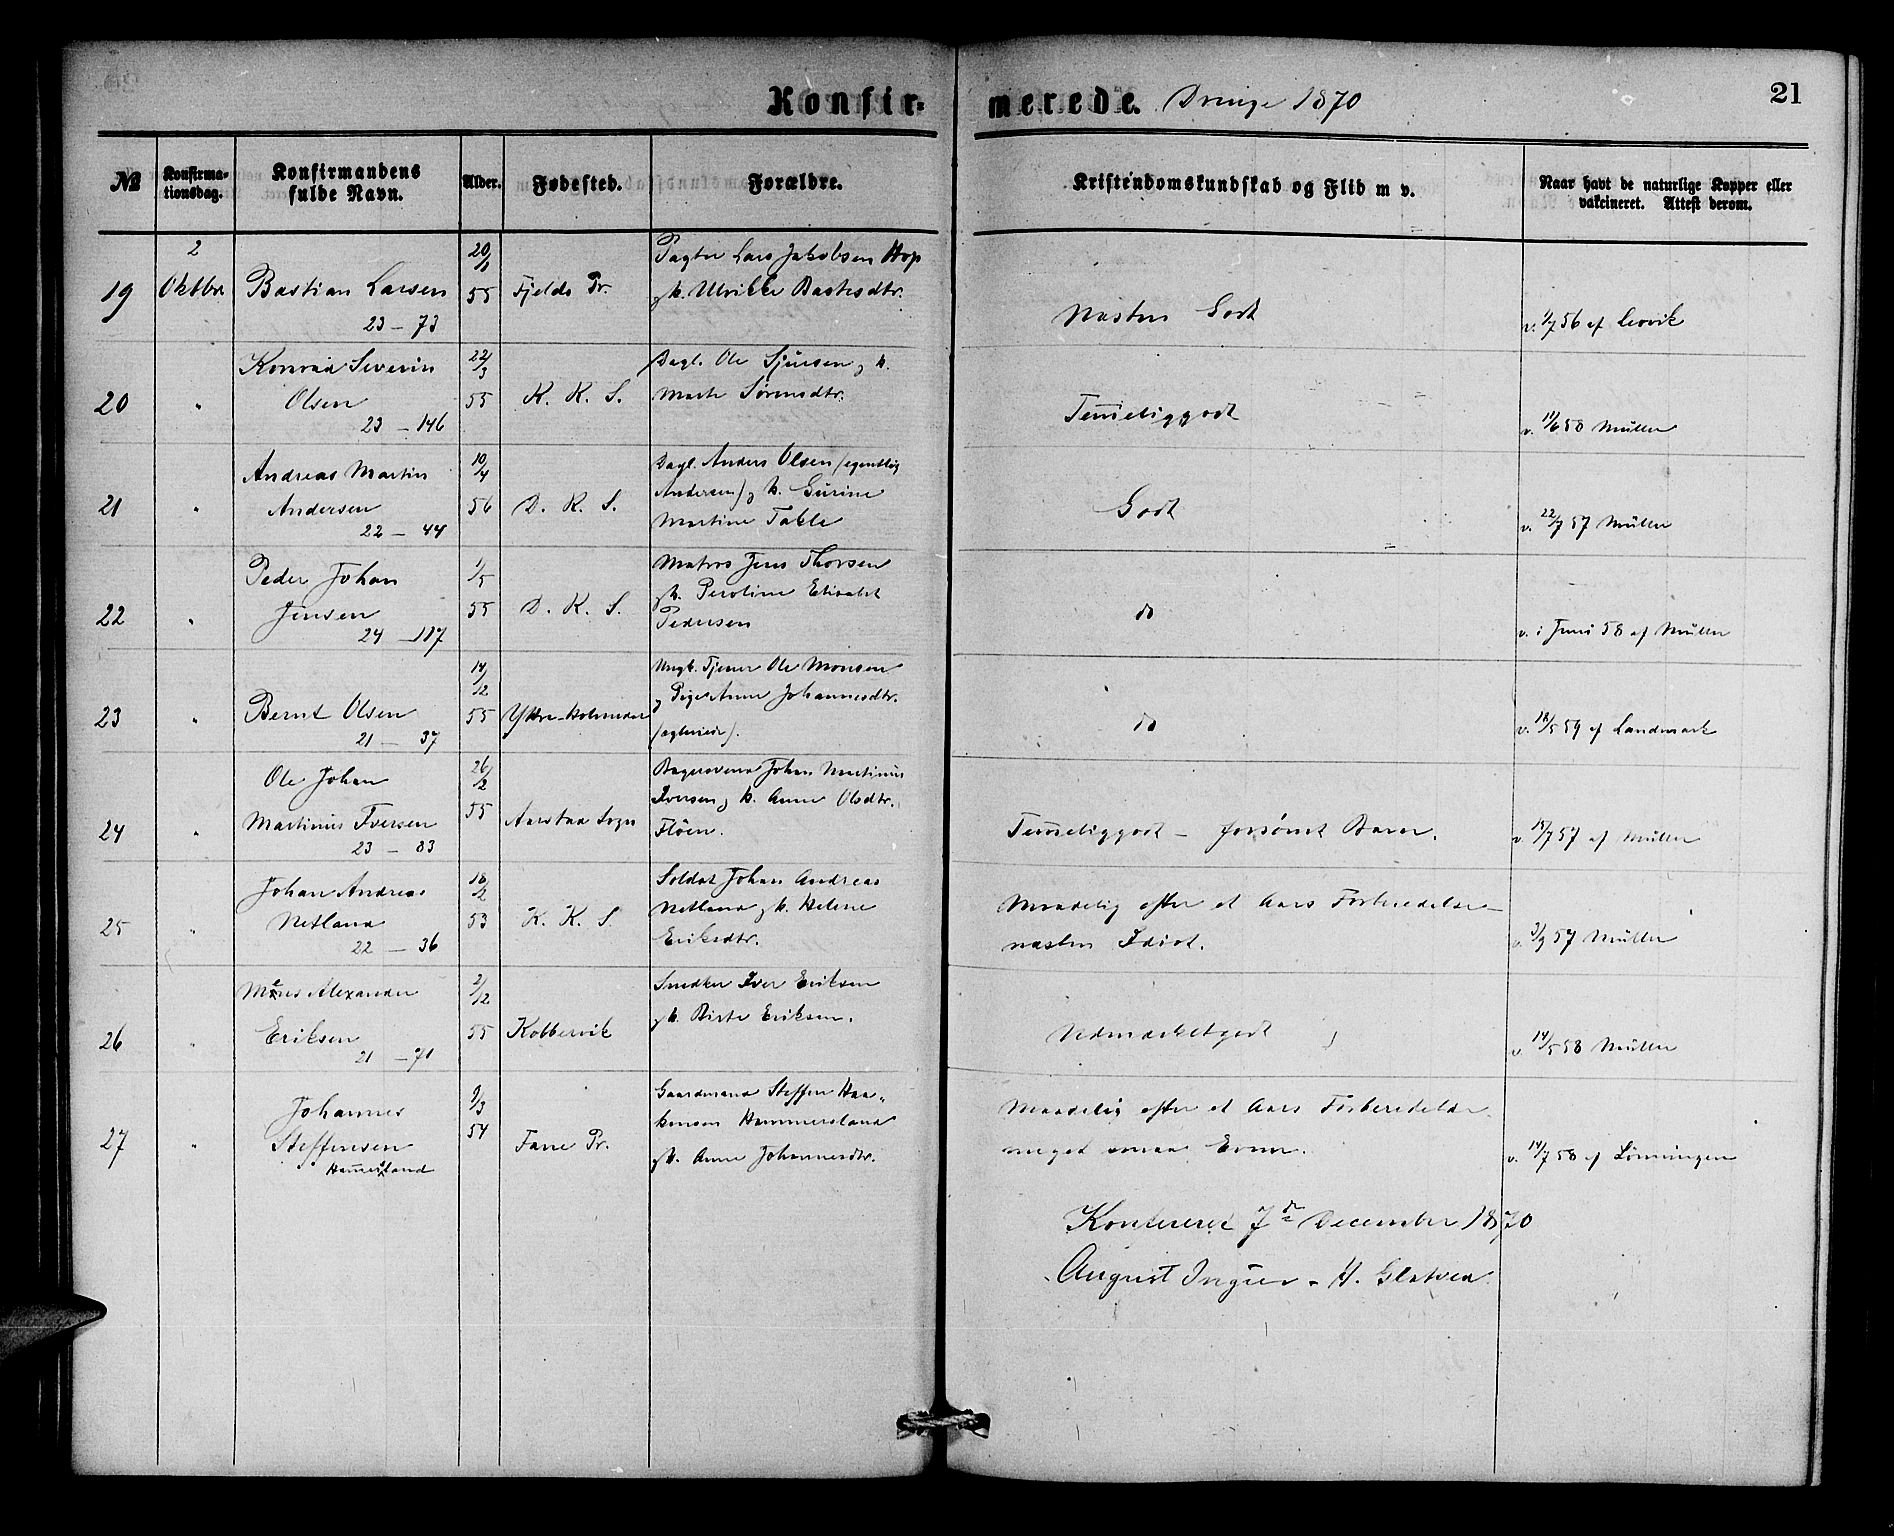 Konfirmerede. Drenge 1870
21
№
Konfirmationsdag.
Konfirmandens fulde Navn.
Alder.
Fødested.
Forældre.
Kristendomskundskab og Flid m v.
Naar havt de naturlige Kopper eller vakcineret. Attest derom.
2
20/1
Pagter Lars Jakobsen Hop
19 Oktbr Bastian Larsen 55 Fjelds Pr. g h. Ulrikke Bastesdtr.
23 – 73
Næsten Godt
v. 1/7 56 af
Konrad Severin 22/3 Dagl. Ole Sjursen g h.
20 " Olsen 55 K. K. S. Marte Sørensdtr.
23 – 146
Temeliggodt
v. 11/6 58 Müller
Andreas Martin 10/4 Dagl. Anders Olsen (egentlig
21 " Andersen 56 D. K. S. Andersen) g h. Gurine
22 – 44 Martine Takle
Godt
v. 22/7 57 Müller
Peder Johan 1/5 Matros Jens Thorsen
22 " Jensen 55 D. K. S. g h. Peroline Elisabet
24 – 187 Pedersen
do
v. i Juni 58 af Müller
14/12 Ungk. Tjener Ole Monsen
23 " Bernt Olsen 55 Ytre-Holmedal g Pige Anne Johannesdtr.
21 – 37 (agteviede).
do
v. 18/5 59 af Landmark
Ole Johan 26/2 Bagersvend Johan Martinus
24 " Martinus Iversen 55 Aarstad Sogn Iversen g h. Anne Olsdtr.
23 – 83 Fløen.
Temeliggodt – forsømt Barn.
v. 15/7 57 af Müller
Johan Andreas 18/2 Soldat Johan Andreas
25 " Netland 53 K. K. S. Netland g h. Helene
22 – 36 Eriksdtr.
Maadelig efter et Aars Forberedelse –
næsten Idiot.
v. 3/9 57 Müller
Alexander 2/12 Snedker Iver Eriksen
26 " Eriksen 55 Kobbervik g h. Birte Eriksen.
21 – 71
Udmærketgodt
v. 14/5 58 Müller
Johannes 9/3 Gaardmand Steffen Haa-
27 " Steffensen 54 Fane Pr. konsen Hammersland
Hamersland g h. Anne Johannesdtr.
Maadelig efter et Aars Forberedelse
meget smaa Evner.
v. 14/7 58 af Lønningen
Konfereret 7de December 1870
August – H.